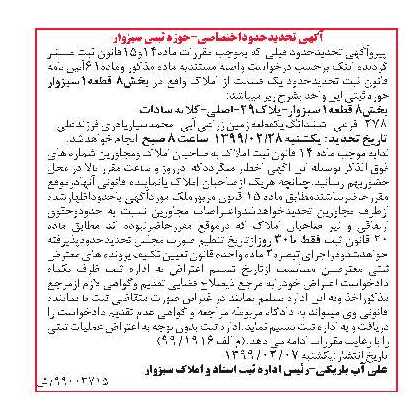 آگهی تحدیدحدوداختصاصی-حوزه ثبتی سبزوار
پیروآگهی تحدیدحدود قبلی که بموجب مقررات ماده۱۴و۱۵قانون ثبت منتشر
گردیده اینک برحسب درخواست واصله مستندبه ماده مذکور وماده۶۱آیین نامه
قانون ثبت تحدیدحدود یک قسمت از املاک واقع در بخش۸ قطعه۱سبزوار
حوزه ثبتی این واحد بشرح زیر میباشد:
بخش۸ قطعه۱سبزوار-پلاک۲۹-اصلی-کلاته سادات
۲۷۸ فرعی ششدانگ یکقطعه زمین زراعی آبی محمد سیاریادری فرزندعلی
تاریخ تحدید: یکشنبه ۱۳۹۹/۰۲/۲۸ ساعت ۸ صبح انجام خواهدشد.
لذابه موجب ماده ۱۴ قانون ثبت املاک به صاحبان املاک ومجاورین شماره های
فوق الذکر بوسیله این آگهی اخطار میگرددکه درروز و ساعت مقرر بالا در محل
حضوربهم رسانید.چنانچه هریک ازصاحبان املاک یانماینده قانونی آنهادرموقع
مقررحاضرنباشندمطابق ماده ۱۵ قانون مزبورملک موردآگهی باحدوداظهارشده
ازطرف مجاورین تحدیدخواهدشدواعتراضات مجاورین نسبت به حدودوحقوق
ارتفاقی و نیز صاحبان املاک که درموقع مقررحاضرنبوده اند مطابق ماده
۲۰ قانون ثبت فقط تا۳۰ روزازتاریخ تنظیم صورت مجلس تحدیدحدودپذیرفته
خواهدشدودراجرای تبصره۲ ماده واحده قانون تعیین تکلیف پرونده های معترض
ثبتی معترضین میبایست ازتاریخ تسلیم اعتراض به اداره ثبت ظرف یکماه
دادخواست اعتراض خودرابه مرجع ذیصلاح قضایی تقدیم وگواهی لازم ازمرجع
مذکوراخذوبه این اداره تسلیم نمایند در غیراین صورت متقاضی ثبت یا نماینده
قانونی وی میتواند به دادگاه مربوطه مراجعه و گواهی عدم تقدیم دادخواست را
دریافت و به اداره ثبت تسلیم نماید.اداره ثبت بدون توجه به اعتراض عملیات ثبتی
را با رعایت مقررات ادامه می دهد.(م الف ۹۹/۱۹۱۶)
تاریخ انتشار:یکشنبه ۱۳۹۹/۰۲/۰۷
علی آب باریکی-رئیس اداره ثبت اسناد و املاک سبزوار
۹۹۰۰۲۷۱۵/ش